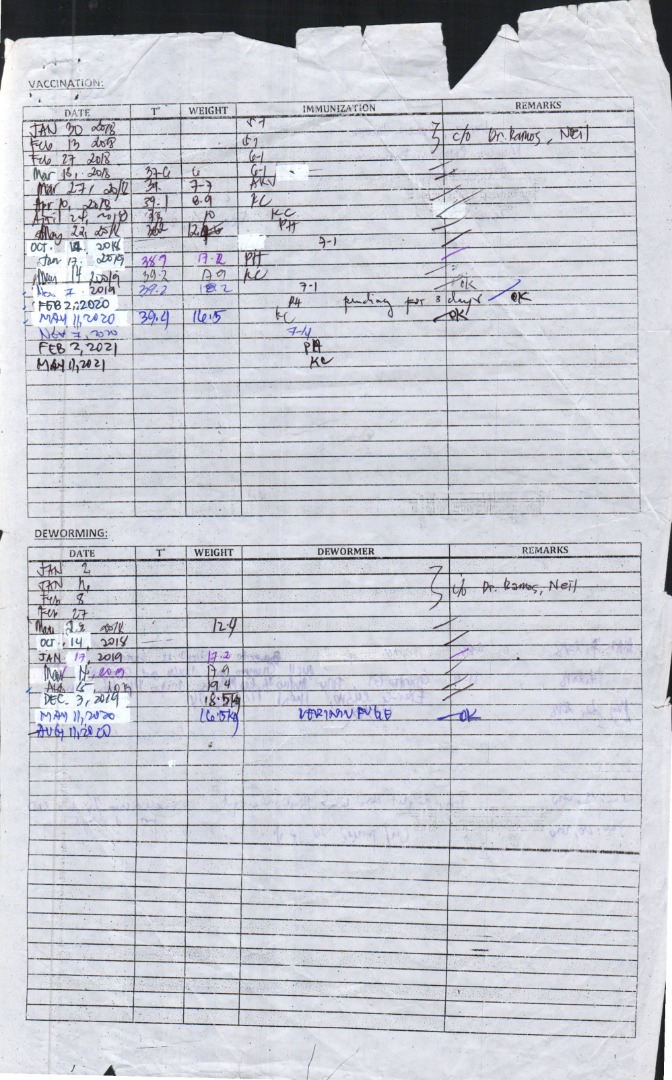 VACCINATION:
DATE T° WEIGHT IMMUNIZATION REMARKS
JAN 30 2018 5-1
Feb 13 2018 5-1 c/o Dr. Ramos, Neil
Feb 27 2018 6-1
Mar 13, 2018 37-6 6 6-1
Mar 27, 2018 39. 7-7 ARV
Apr 10, 2018 39.1 8.9 KC
April 10 KC
May 22, 2018 PH
OCT. 14 2018 7-1
Jan 17 2019 38.9 17.2 PH
14 2019 39.2 17.9 KC
7 2019 39.2 18.2 7-1 OK
FEB 2, 2020 PH pending for 3 days OK
MAY 11, 2020 39.4 16.5 KC OK
NOV 7, 2020 7-1
FEB 2, 2021 PH
MAY 11, 2021 KC
DEWORMING:
DATE T° WEIGHT DEWORMER REMARKS
JAN 2
JAN c/o Dr. Ramos, Neil
Feb 8
Feb 27
2018 12.4
OCT. 14, 2018
JAN 17, 2019 17.2
14, 2019 17.9
19.4
DEC. 3, 2019 18.5kg
MAY 11, 2020 16.5kg OK
AUG 11, 2020